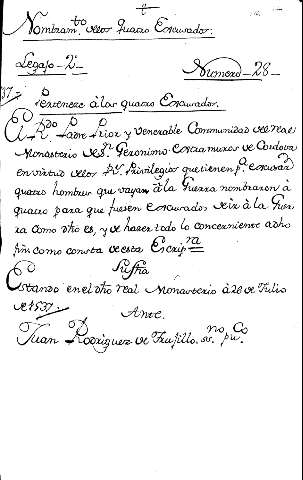 Nombram.to de los quatro Excusados.
Legajo - 2.º
Numero - 28 -
Pertenece à los quatro Excusados.
El R.do Padre Prior, y Venerable Communidad de el real
Monasterio de S.n Geronimo extramuros de Cordova
en virtud de los Privilegios que tienen p.a excusar
quatro hombres que vayan à la Guerra nombraron à
quatro para que fuesen excusados de ir à la Guer-
ra como dho es, y de hacer todo lo concerniente a dho
fin como consta de esta Escrip.ra
Su fha
Estando en el dho real Monasterio à 20 de Julio
de 1537.
Ante.
Juan Rodriguez de Trujillo. no. pu.co